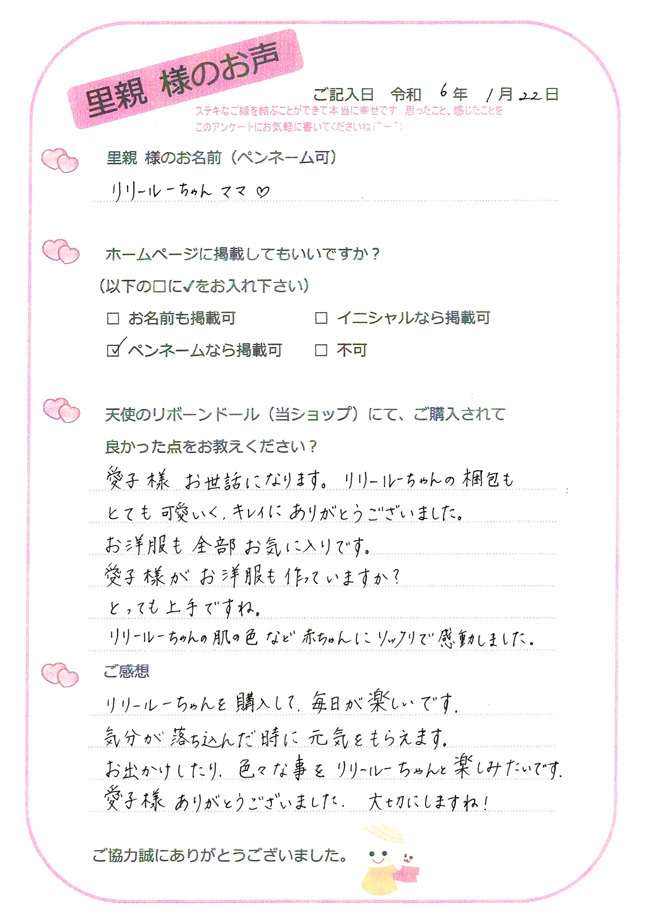 里親 様のお声
ご記入日 令和 6年 1月22日
ステキなご縁を結ぶことができて本当に幸せです。思ったこと、感じたことを
このアンケートにお気軽に書いてくださいね(^ー^)
里親 様のお名前（ペンネーム可）
リリールーちゃん ママ♡
ホームページに掲載してもいいですか？
（以下の□に✓をお入れ下さい）
□ お名前も掲載可 □ イニシャルなら掲載可
☑ ペンネームなら掲載可 □ 不可
天使のリボーンドール（当ショップ）にて、ご購入されて
良かった点をお教えください？
愛子様 お世話になります。リリールーちゃんの梱包も
とても可愛いく、キレイにありがとうございました。
お洋服も全部お気に入りです。
愛子様がお洋服も作っていますか？
とっても上手ですね。
リリールーちゃんの肌の色など赤ちゃんにソックリで感動しました。
ご感想
リリールーちゃんを購入して、毎日が楽しいです。
気分が落ち込んだ時に元気をもらえます。
お出かけしたり、色々な事をリリールーちゃんと楽しみたいです。
愛子様ありがとうございました。大切にしますね！
ご協力誠にありがとうございました。